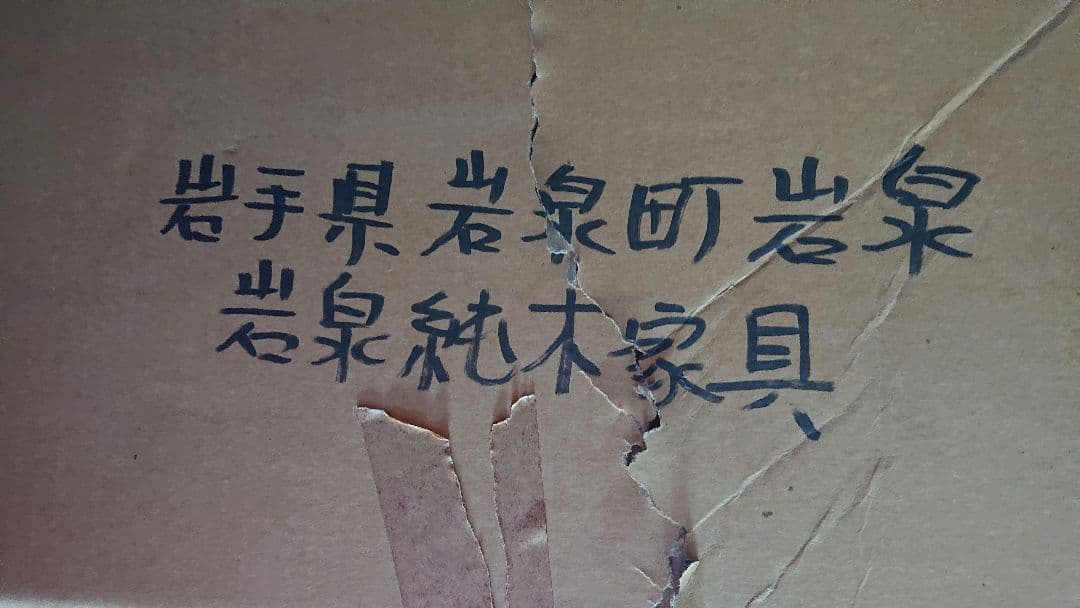 岩手県岩泉町岩泉
岩泉純木家具